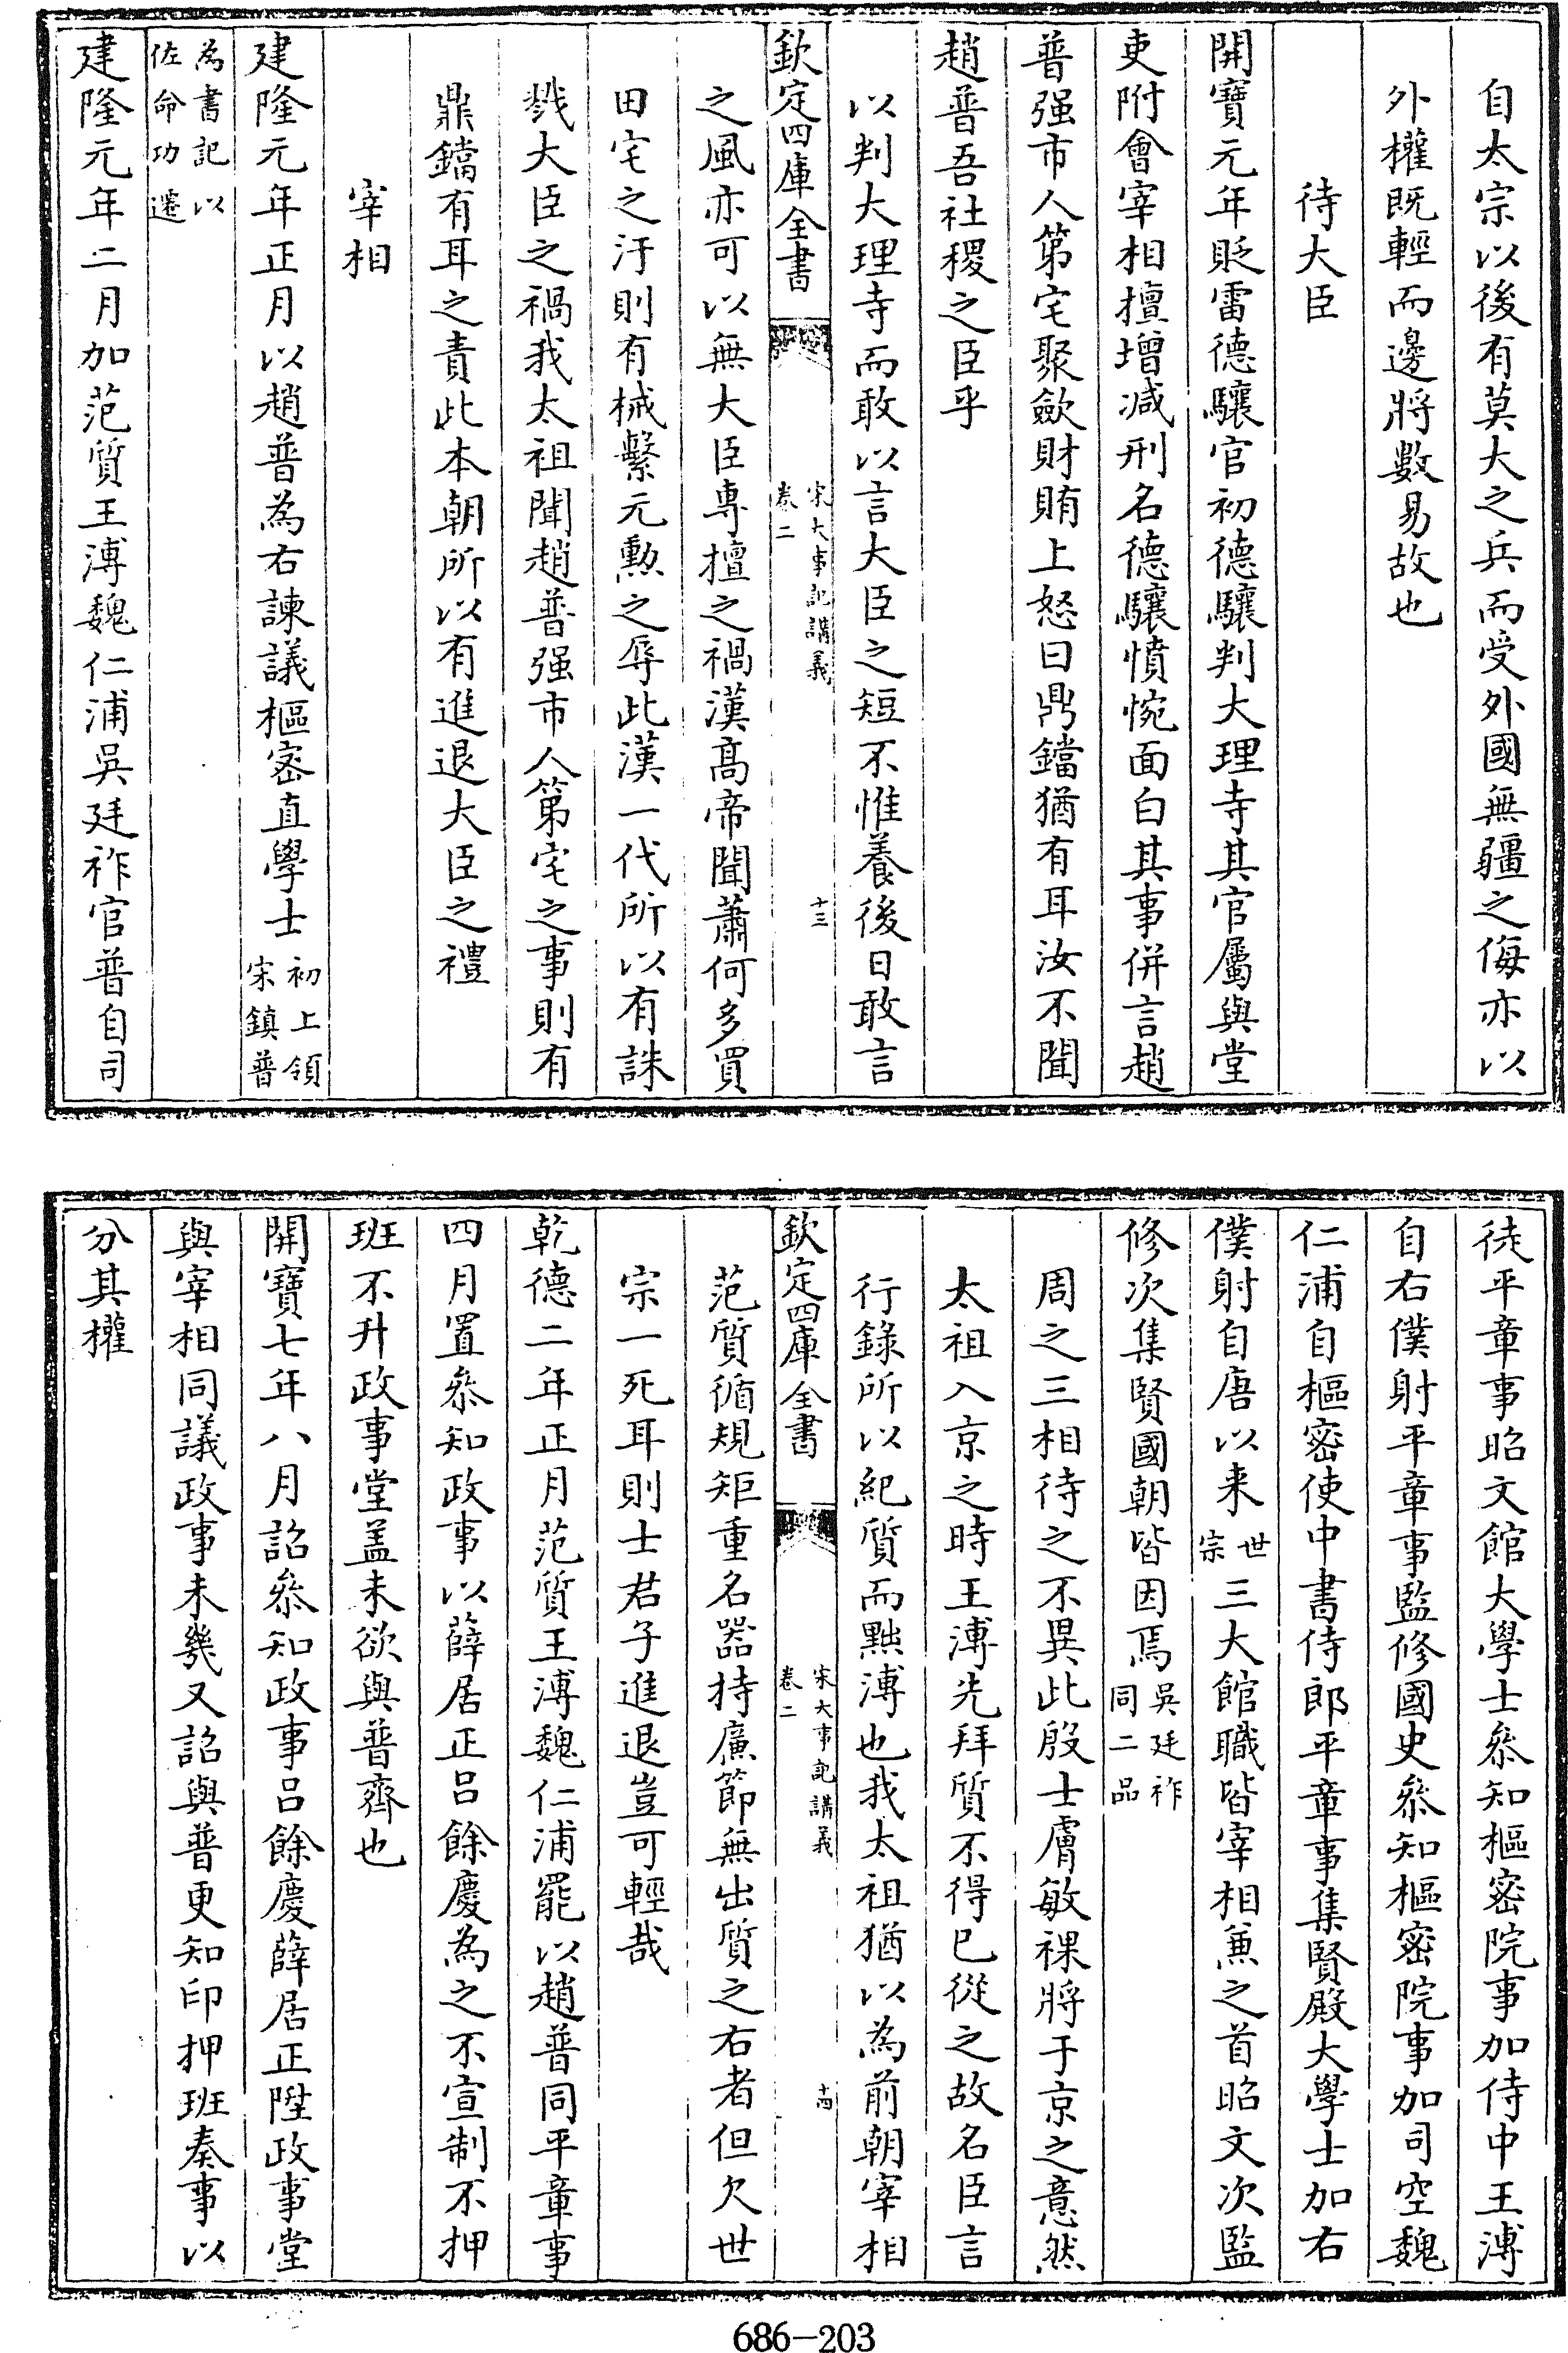 自太宗以後有莫大之兵而受外國無疆之侮亦以
外權既輕而邊將數易故也
待大臣
開寶元年貶雷德驤官初德驤判大理寺其官屬與堂
吏附會宰相擅增减刑名德驤憤惋面白其事併言趙
普强市人第宅聚歛財賄上怒曰鼎鐺猶有耳汝不聞
趙普吾社稷之臣乎
以判大理寺而敢以言大臣之短不惟養後日敢言
欽定四庫全書
宋大事記講義
卷二
十三
之風亦可以無大臣專擅之禍漢髙帝聞蕭何多買
田宅之汙則有械繫元勲之辱此漢一代所以有誅
戮大臣之禍我太祖聞趙普强市人第宅之事則有
鼎鐺有耳之責此本朝所以有進退大臣之禮
宰相
建隆元年正月以趙普為右諫議樞密直學士初上領宋鎮普
為書記以佐命功遷
建隆元年二月加范質王溥魏仁浦吳廷祚官普自司
徒平章事昭文館大學士叅知樞密院事加侍中王溥
自右僕射平章事監修國史叅知樞密院事加司空魏
仁浦自樞密使中書侍郎平章事集賢殿大學士加右
僕射自唐以来世宗三大館職皆宰相兼之首昭文次監
修次集賢國朝皆因焉吳廷祚同二品
周之三相待之不異此殷士膚敏祼將于京之意然
太祖入京之時王溥先拜質不得已從之故名臣言
行錄所以紀質而黜溥也我太祖猶以為前朝宰相
欽定四庫全書
宋大事記講義
卷二
十四
范質循規矩重名器持廉節無出質之右者但欠世
宗一死耳則士君子進退豈可輕哉
乾德二年正月范質王溥魏仁浦罷以趙普同平章事
四月置叅知政事以薛居正吕餘慶為之不宣制不押
班不升政事堂盖未欲與普齊也
開寶七年八月詔叅知政事吕餘慶薛居正陞政事堂
與宰相同議政事未幾又詔與普更知印押班奏事以
分其權
686-203